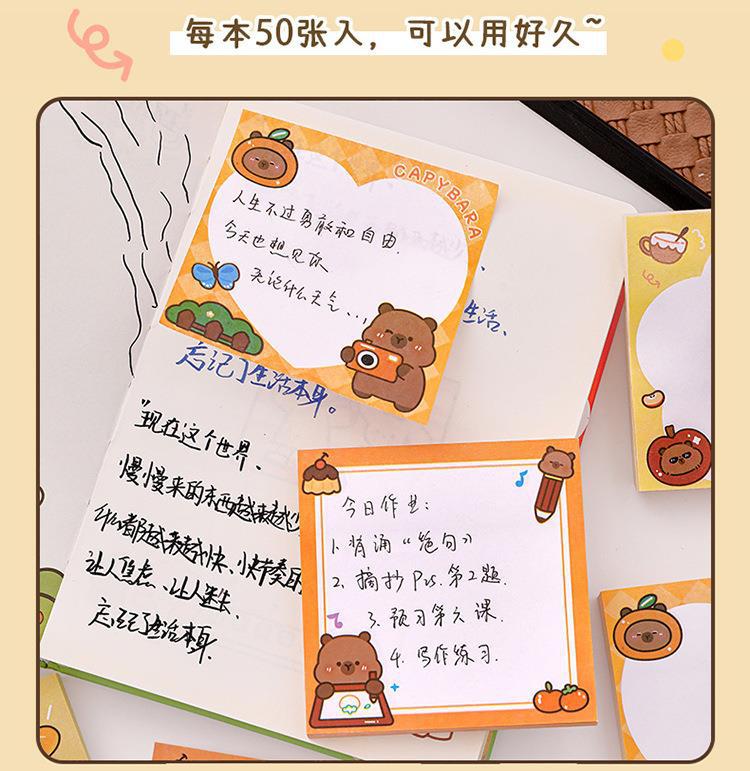 每本50张入，可以用好久~
CAPYBARA
人生不过勇敢和自由.
今天也想见你
无论什么天气...
生活、
忘记了生活本身。
"现在这个世界、
慢慢来的东西越来越少
什么都越来越快、快节奏的
让人焦虑、让人迷失、
忘记了生活本身.
今日作业:
1. 背诵《绝句》
2. 摘抄 P25. 第2题.
3. 预习第六课.
4. 写作练习.